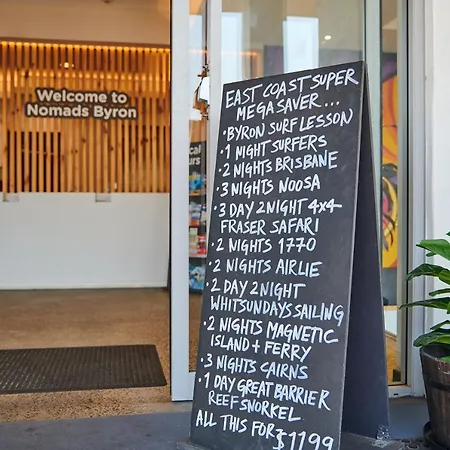 Welcome to
Nomads Byron
EAST COAST SUPER
MEGA SAVER...
• BYRON SURF LESSON
• 1 NIGHT SURFERS
• 2 NIGHTS BRISBANE
• 3 NIGHTS NOOSA
• 3 DAY 2 NIGHT 4x4
FRASER SAFARI
• 2 NIGHTS 1770
• 2 NIGHTS AIRLIE
• 2 DAY 2 NIGHT
WHITSUNDAYS SAILING
• 2 NIGHTS MAGNETIC
ISLAND + FERRY
• 3 NIGHTS CAIRNS
• 1 DAY GREAT BARRIER
REEF SNORKEL
ALL THIS FOR
$1199